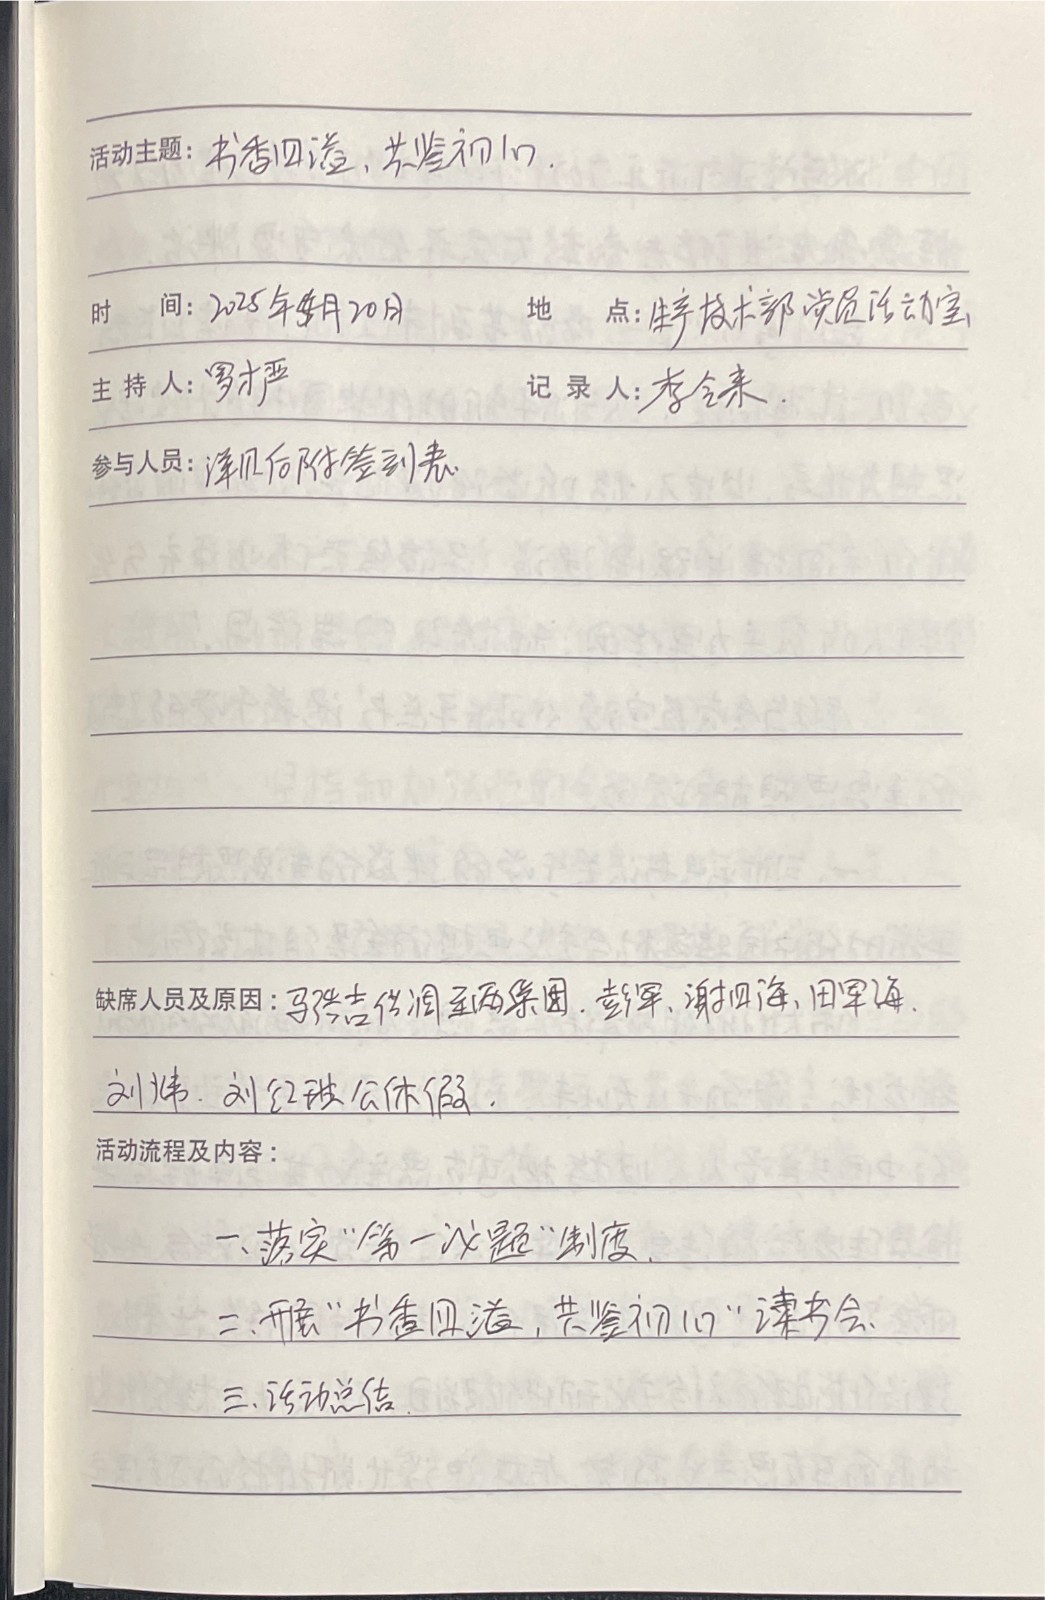 活动主题：书香四溢，共鉴初心.
时 间：2025年 月20日 地 点：生产技术部党员活动室
主 持 人：罗才严 记 录 人：李会来.
参与人员：详见后附签到表.
缺席人员及原因：马 吉借调至两集团.彭军、谢四海、田军海.
刘炜.刘红 公休假.
活动流程及内容：
一、落实“第一议题”制度.
二、开展“书香四溢，共鉴初心”读书会.
三、活动总结.